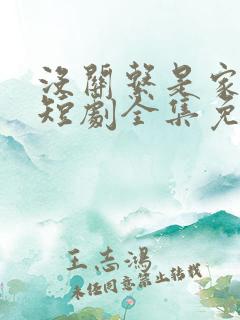 没關繫是家
短劇全集免
王志鴻
未经同意禁止转载